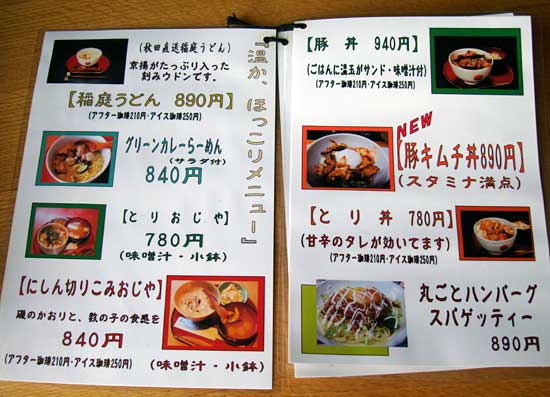 『温か、ほっこりメニュー』
(秋田直送稲庭うどん)
京揚がたっぷり入った
刻みウドンです。
【稲庭うどん 890円】
(アフター珈琲210円・アイス珈琲250円)
グリーンカレーらーめん
(サラダ付)
840円
【とりおじや】
780円
(味噌汁・小鉢)
【にしん切りこみおじや】
磯のかおりと、数の子の食感を
840円
(アフター珈琲210円・アイス珈琲250円)
(味噌汁・小鉢)
【豚丼 940円】
(ごはんに温玉がサンド・味噌汁付)
(アフター珈琲210円・アイス珈琲250円)
NEW
【豚キムチ丼890円】
(スタミナ満点)
【とり丼 780円】
(甘辛のタレが効いてます)
(アフター珈琲210円・アイス珈琲250円)
丸ごとハンバーグ
スパゲッティー
890円